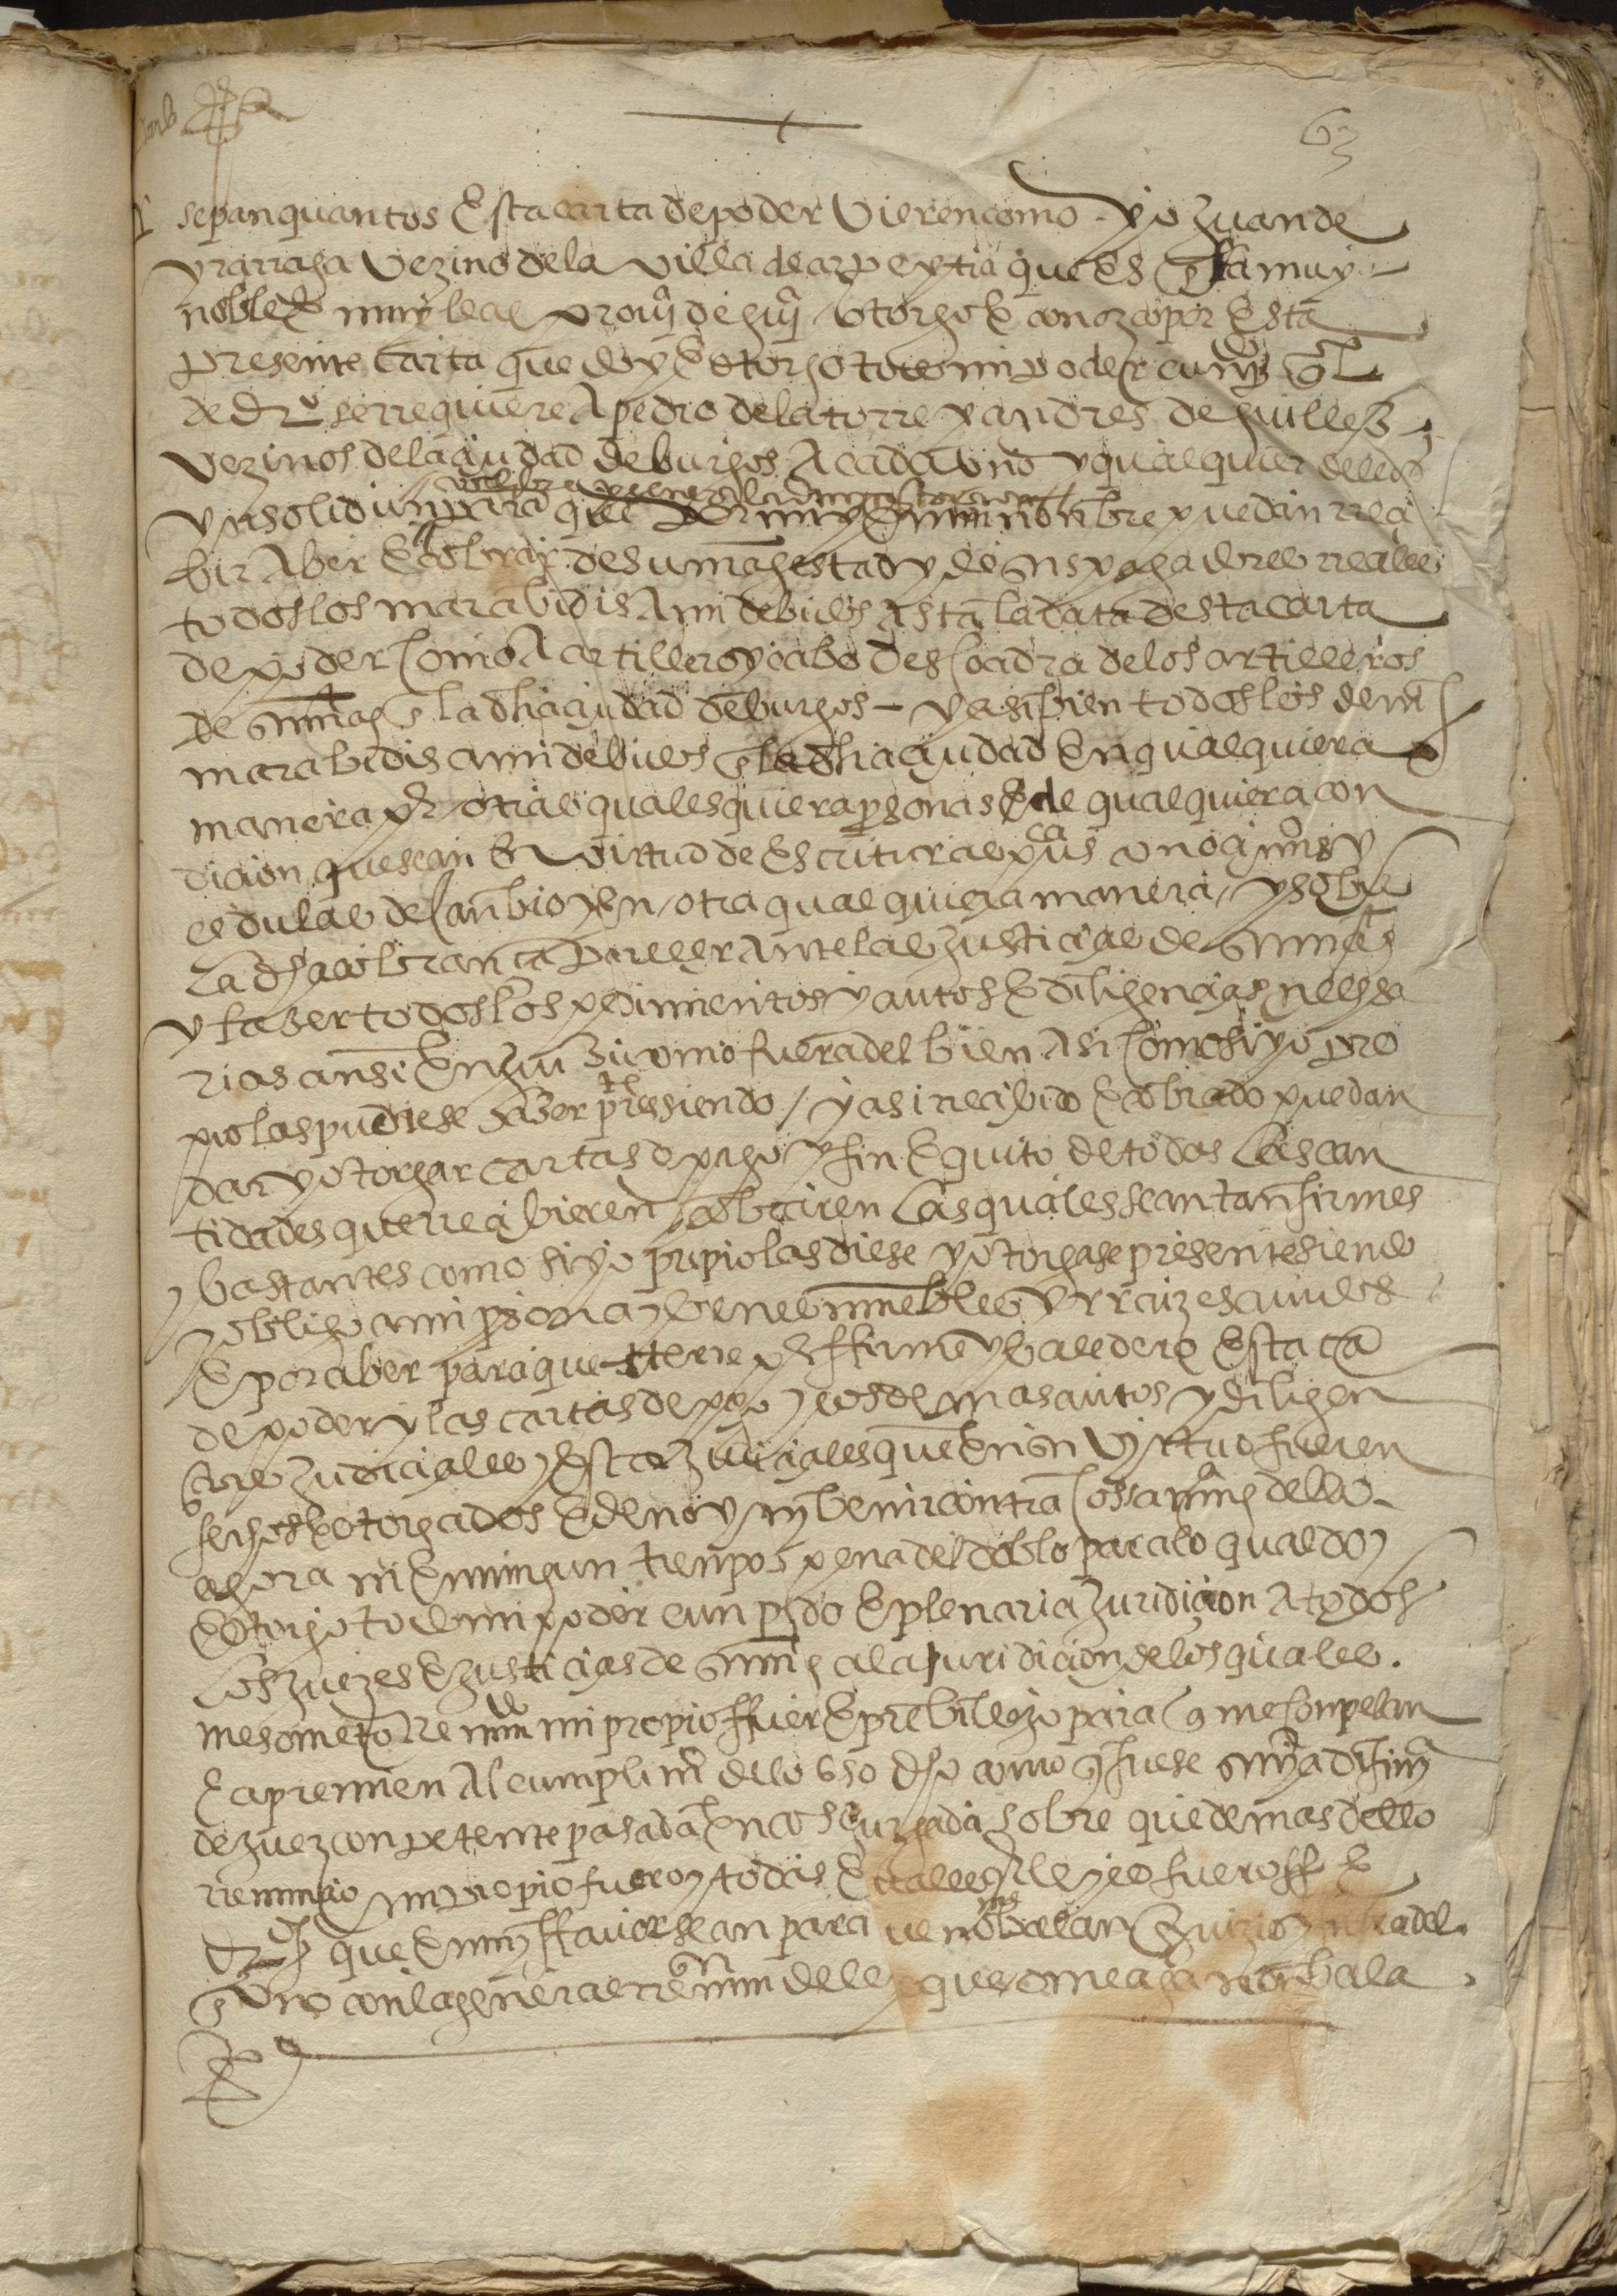 63
sepan quantos Esta carta de poder Vieren como yo Juan de
yrarraga Vezino dela villa de azpeytia que Es En la muy
noble E muy leal prouyª de guipª otorgo E conozco por Esta
presente carta que doy E otorgo todo mi poder cunplido
de drº se rrequiere A pedro de la torre y andres de
Vezinos dela ciudad de burgos A cada uno y qualquier dellos
yn solidun para que por my E en mi nonbre puedan rreci
bir Aber E cobrar de su magestad y de sus pagadores rreales
todos los marabidis A mi debidos Asta la data desta carta
de poder Como Artillero y cabo de escoadra de los artilleros
de su mag En la dha ciudad de burgos – y asi bien todos los demas
marabidis a mi debidos En la dha ciudad En qualquiera
manera por otras qualesquiera psonas E de qualquiera con
dicion que sean En Virtud de Escrituras pucas conocimyºs y
cedulas de Canbio y En otra qualquiera manera, y sobre
la dha cobranca Parecer Ante las Justicias de su magt
y fazer todos los pedimientos y autos E diligencias necesa
rias ansi En Juizio como fuera del bien Asi Como si yo pro
pio las pudiese hazer presente siendo / y asi recibido E cobrado puedan
dar y otorgar cartas de pago y fin E quito de todas las can
tidades que rrecibieren E cobraren las quales sean tan firmes
y bastantes como si yo propio las diese y otorgase presente siendo
y obligo a mi psona y bienes muebles y rraizes auidos
E por aber para que terne por firme y baledero Esta carta
de poder y las cartas de pago y los demas autos y diligen
cias Judiciales y Estrajudiciales que En su Virtud fueren
fechos E otorgados E de no yr ny benir contra Cosa alguna dello
agora ni En ningun tienpo so pena del doblo para lo qual doy
E otorgo todo mi poder cunplido E plenaria Juridicion A todos
los Juezes E Justicias de su mag a la juridicion de los quales
me someto rrenunciando mi propio fuero E prebilegio para que me Conpelan
E apremien Al cumplimº delo suso dho como si fuese sentencia difinitiva
de Juez conpetente pasada En cosa Juzgada sobre que demas dello
rrenuncio mi propio fuero y todas E quales leyes fueros E
drºs que En my fabor sean para que no me balan En Juizio ny fuera del
En vno con la general rrenun de leyes que ome aga non bala